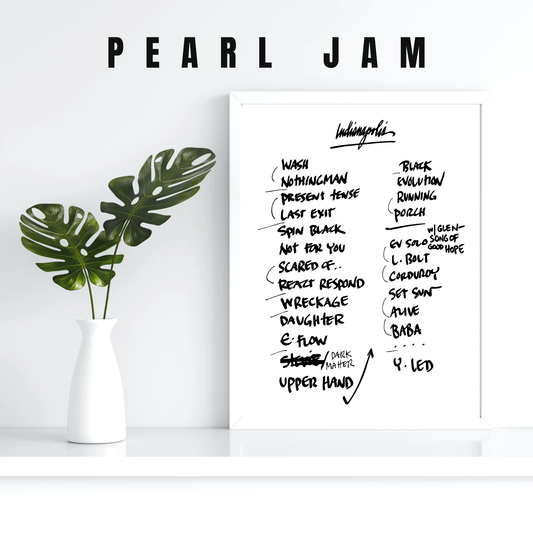 PEARL JAM
Indianapolis
WASH
NOTHINGMAN
PRESENT TENSE
LAST EXIT
SPIN BLACK
NOT FOR YOU
SCARED OF..
REACT RESPOND
WRECKAGE
DAUGHTER
E. FLOW
STEVIE/DARK MATTER
UPPER HAND
BLACK
EVOLUTION
RUNNING
PORCH
EV SOLO w/ GLEN- SONG OF GOOD HOPE
L. BOLT
CORDUROY
SET SUN
ALIVE
BABA
. . . .
Y. LED